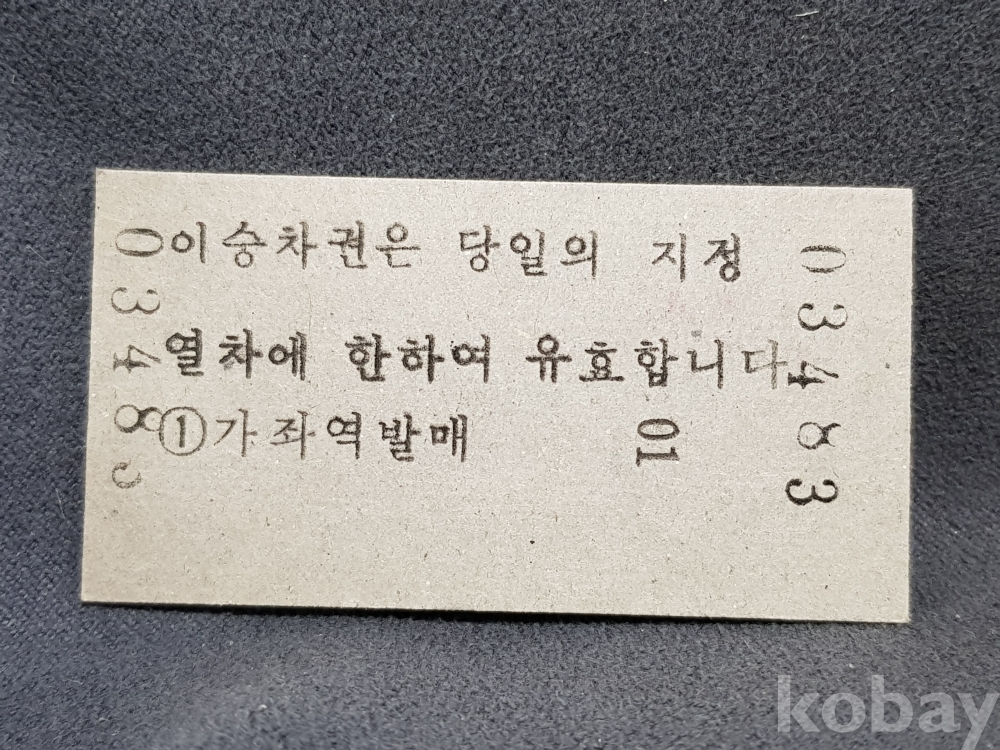 이 승차권은 당일의 지정
열차에 한하여 유효합니다
①가좌역발매 01
03483
03483
kobay